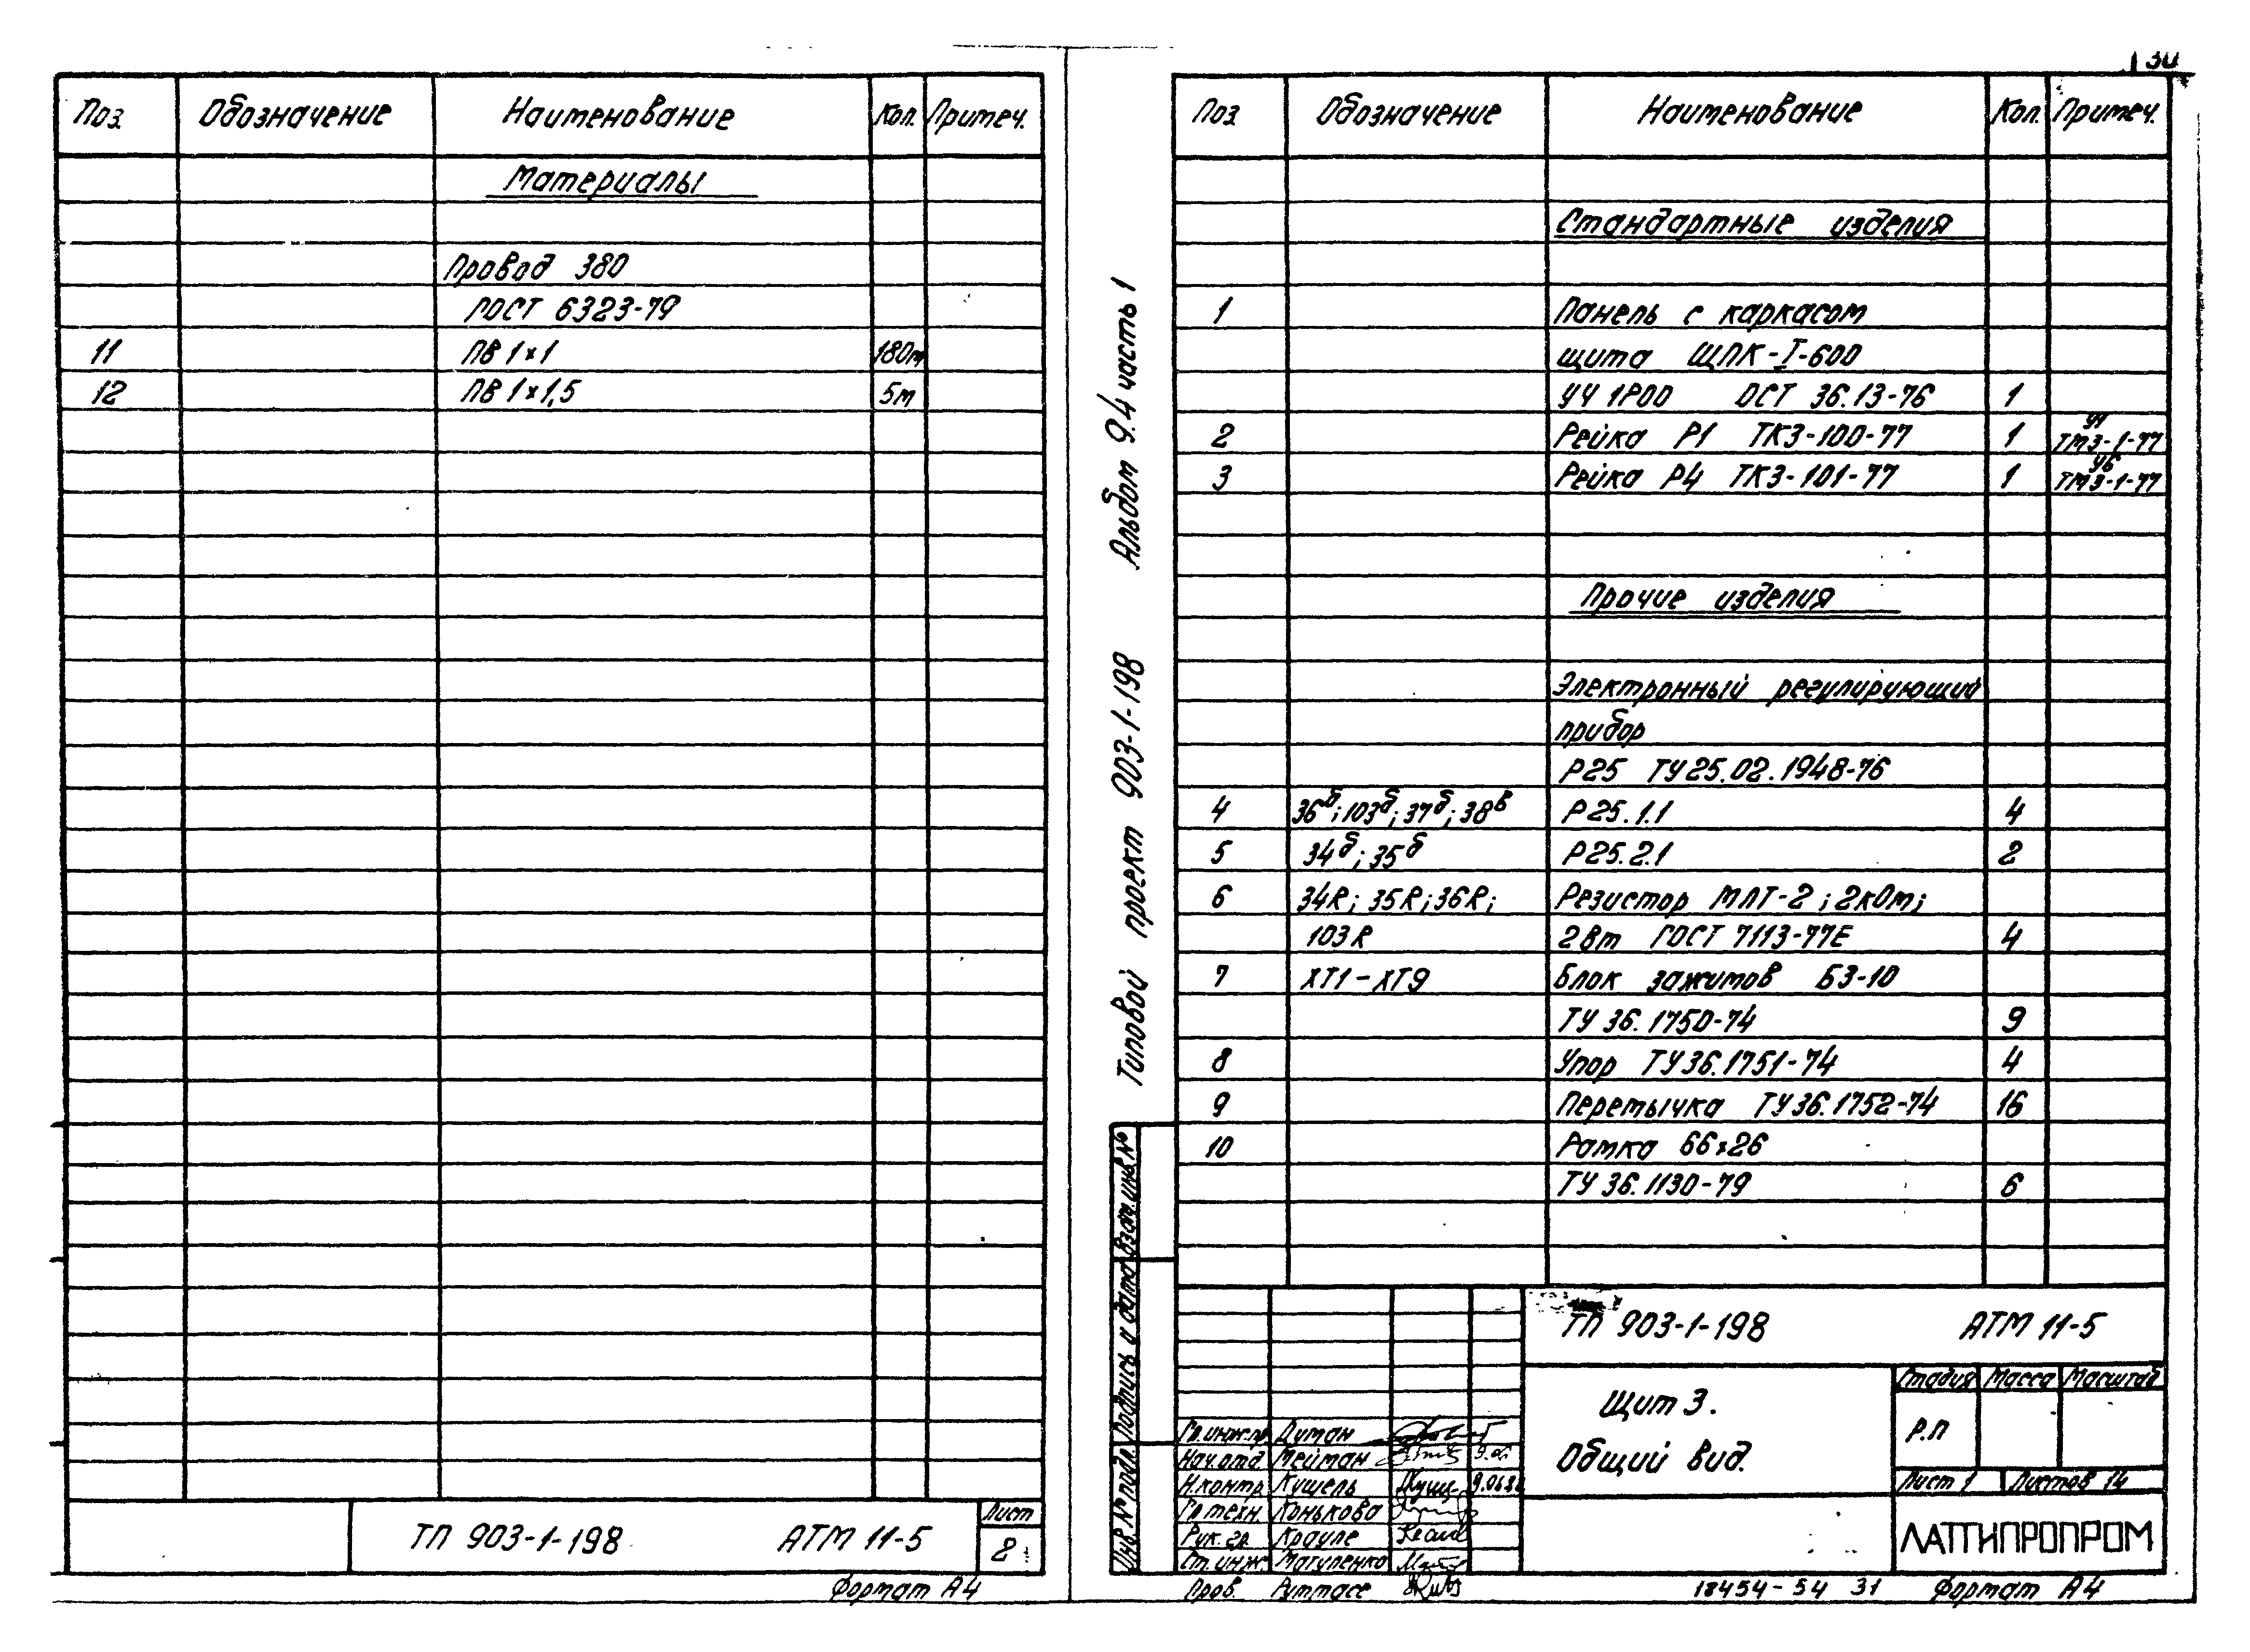 Поз. Обозначение Наименование Кол. Примеч.
Материалы
Провод 380
ГОСТ 6323-79
11 ПВ 1×1 180м
12 ПВ 1×1,5 5м
ТП 903-1-198 АТМ 11-5
Лист
2
Формат А4
Типовой проект 903-1-198 Альбом 9.4 часть 1
Взам. инв.№
Подпись и дата
Инв.№ подл.
Поз. Обозначение Наименование Кол. Примеч.
Стандартные изделия
1 Панель с каркасом
щита ЩПК-I-600
УЧ 1Р00 ОСТ 36.13-76 1
2 Рейка Р1 ТК3-100-77 1 У1 ТМ3-1-77
3 Рейка Р4 ТК3-101-77 1 У6 ТМ3-1-77
Прочие изделия
Электронный регулирующий
прибор
Р25 ТУ25.02.1948-76
4 36б; 103б; 37б; 38в Р25.1.1 4
5 34б; 35б Р25.2.1 2
6 34R; 35R; 36R; Резистор МЛТ-2; 2кОм;
103R 2Вт ГОСТ 7113-77Е 4
7 ХТ1-ХТ9 Блок зажимов БЗ-10
ТУ 36.1750-74 9
8 Упор ТУ36.1751-74 4
9 Перемычка ТУ36.1752-74 16
10 Рамка 66×26
ТУ 36.1130-79 6
ТП 903-1-198 АТМ 11-5
Щит 3.
Общий вид.
Стадия Масса Масштаб
Р.П
Лист 1 Листов 14
ЛАТГИПРОПРОМ
Гл.инж.пр. Думан
Нач.отд. Мейман
Н.контр. Кушель
Гл.техн. Конькова
Рук.гр. Крауле
Ст.инж. Матуленко
Пров. Руммасе
18454-54 31 Формат А4